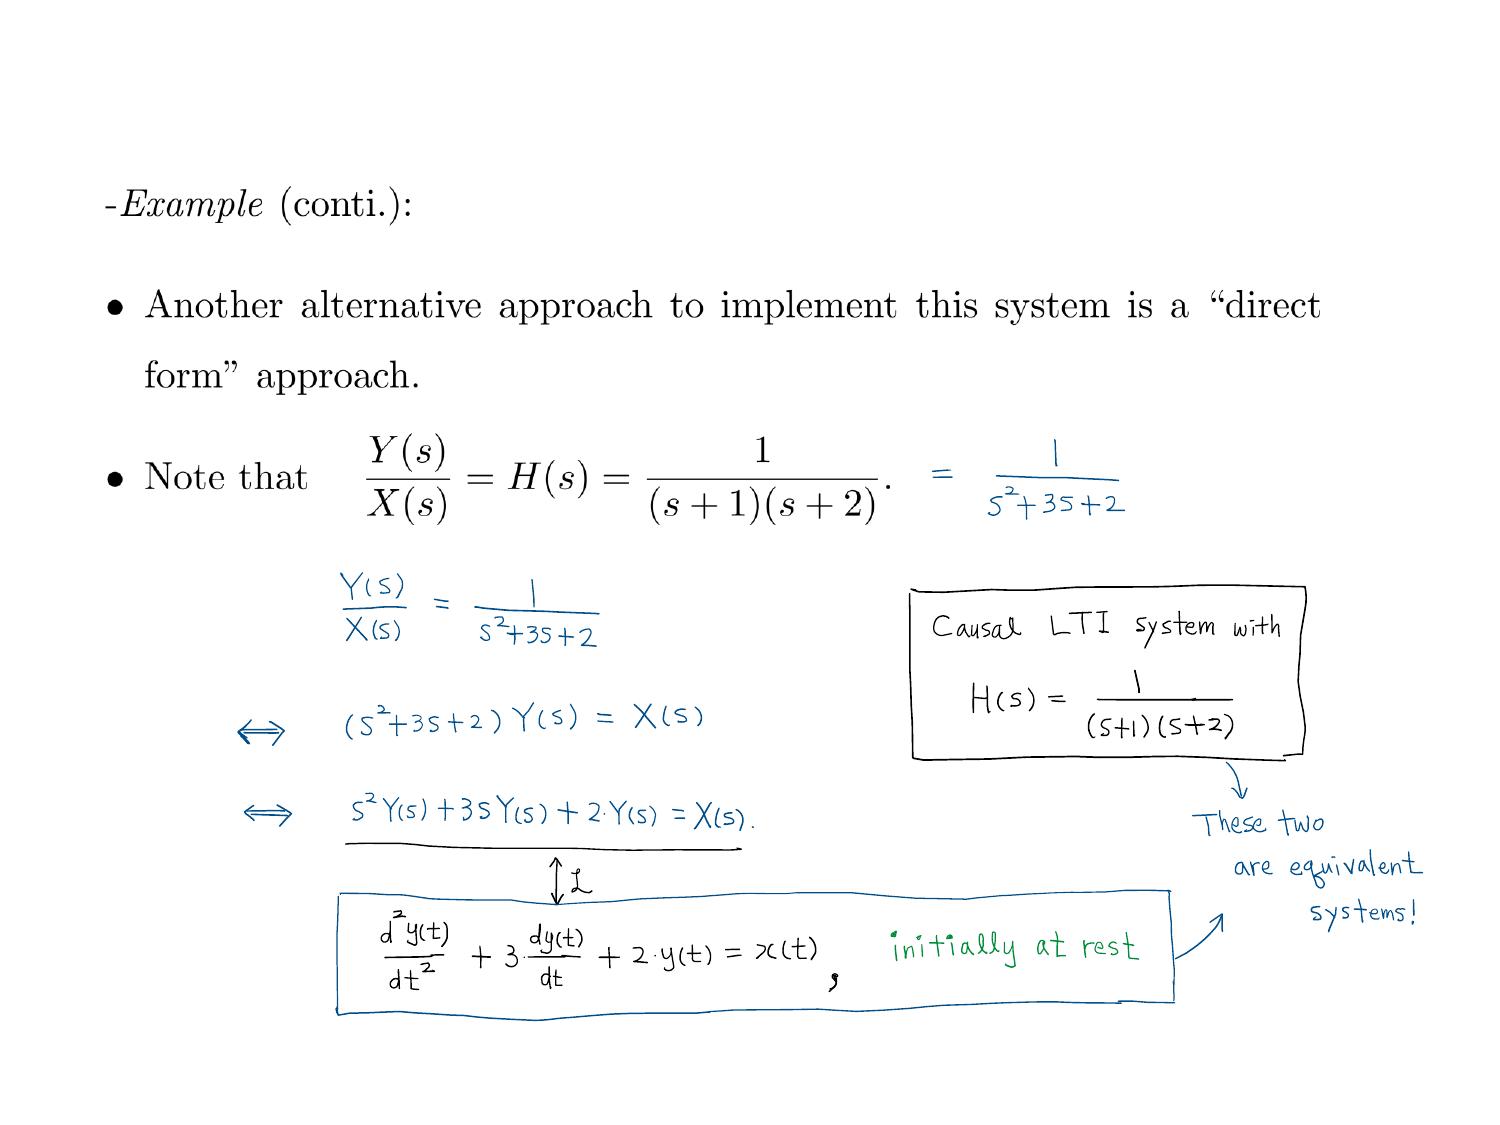 -Example (conti.):
• Another alternative approach to implement this system is a “direct
form” approach.
• Note that Y(s)/X(s) = H(s) = 1/((s + 1)(s + 2)). = 1/(s²+3s+2)
Y(s)/X(s) = 1/(s²+3s+2)
⇔ (s²+3s+2) Y(s) = X(s)
⇔ s²Y(s)+3sY(s)+2·Y(s) = X(s).
↕ ℒ
d²y(t)/dt² + 3·dy(t)/dt + 2·y(t) = x(t), initially at rest
Causal LTI system with
H(s) = 1/((s+1)(s+2))
These two
are equivalent
systems!